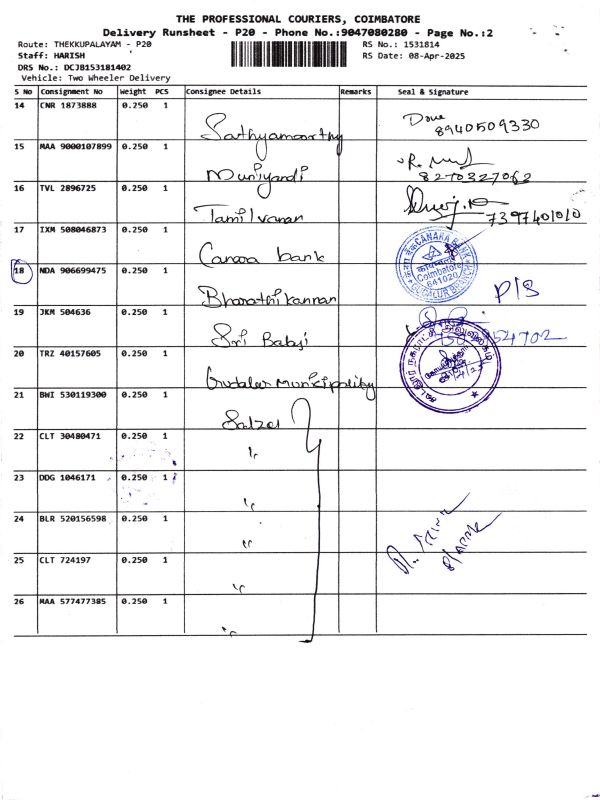 THE PROFESSIONAL COURIERS, COIMBATORE
Delivery Runsheet - P20 - Phone No.:9047080280 - Page No.:2
Route: THEKKUPALAYAM - P20
RS No.: 1531814
Staff: HARISH
RS Date: 08-Apr-2025
DRS No.: DCJB153181402
Vehicle: Two Wheeler Delivery
S No Consignment No Weight PCS Consignee Details Remarks Seal & Signature
14 CNR 1873888 0.250 1 Sathyamoorthy
8940509330
15 MAA 9000107899 0.250 1 Muniyandi
8270327062
16 TVL 2896725 0.250 1 Tamilvanan
7397401010
17 IXM 508046873 0.250 1 Canara bank
CANARA BANK
Coimbatore
641020
18 NDA 906699475 0.250 1 Bharathikannan
P/S
19 JKM 504636 0.250 1 Sri Babji
54702
20 TRZ 40157605 0.250 1 Gudalur Municipality
21 BWI 530119300 0.250 1 Salzer
22 CLT 30480471 0.250 1 "
23 DDG 1046171 0.250 1 "
24 BLR 520156598 0.250 1 "
25 CLT 724197 0.250 1 "
26 MAA 577477385 0.250 1 "